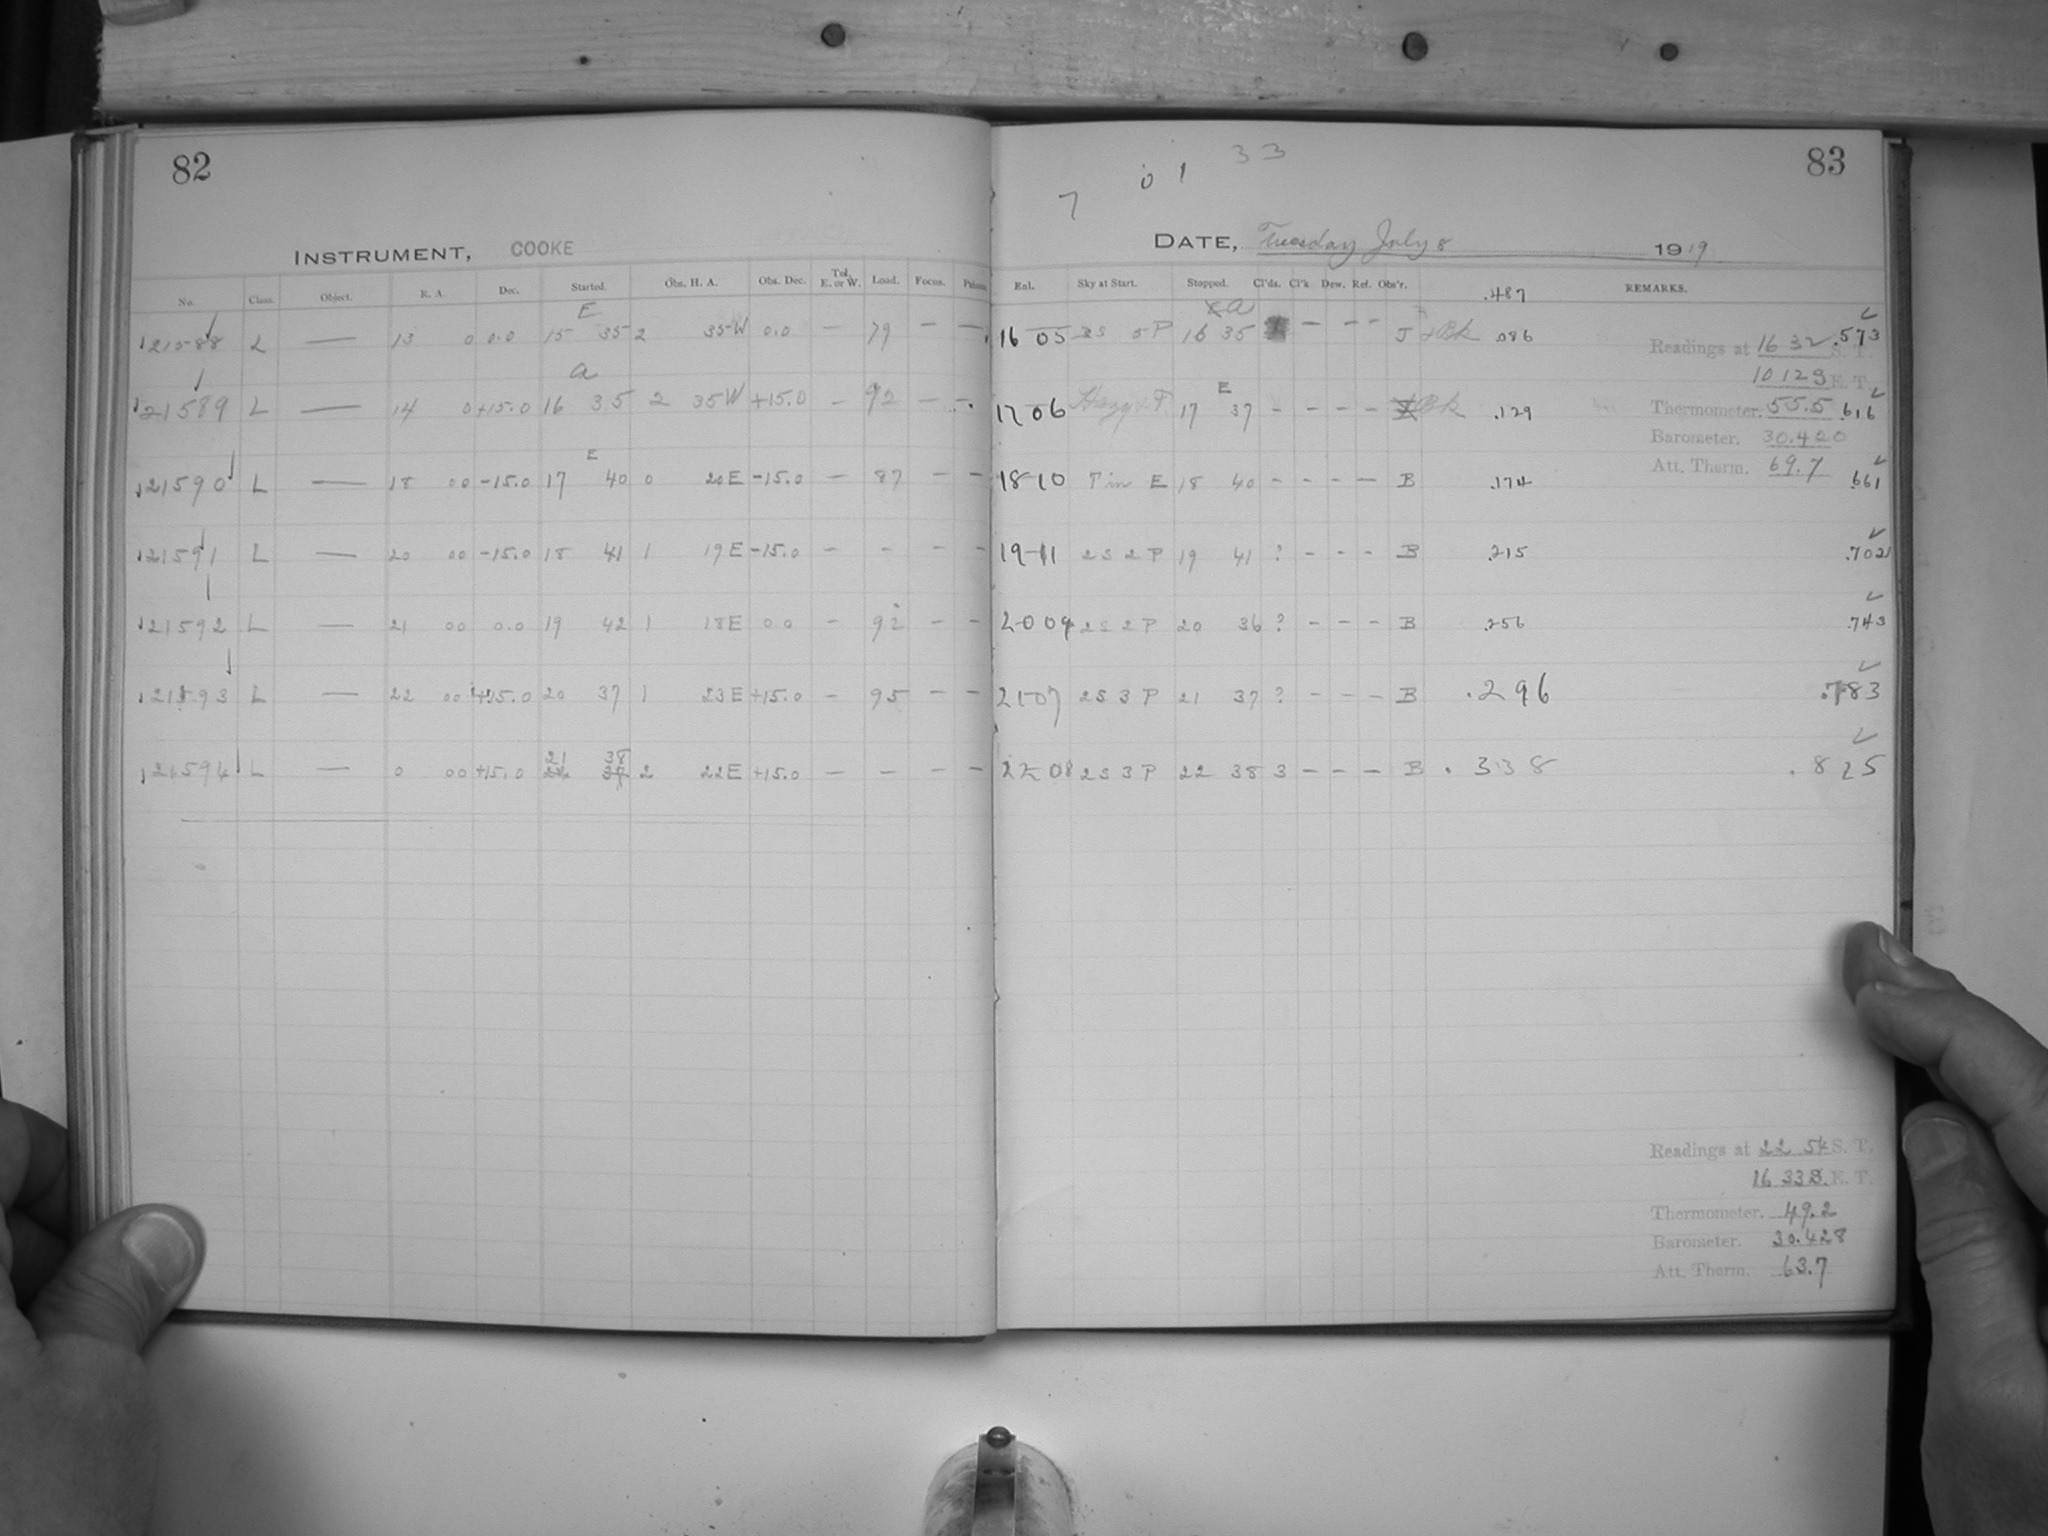 82
INSTRUMENT, COOKE
No. Class. Object. R. A. Dec. Started. Obs. H. A. Obs. Dec. Tel. E. or W. Load. Focus.
E
21588 L — 13 0 0.0 15 35 2 35 W 0.0 — 79 — —
a
21589 L — 14 0 +15.0 16 35 2 35 W +15.0 — 92 — —
E
21590 L — 18 00 -15.0 17 40 0 20 E -15.0 — 87 — —
21591 L — 20 00 -15.0 18 41 1 19 E -15.0 - - - -
21592 L — 21 00 0.0 19 42 1 18 E 0.0 - 92 - -
21593 L — 22 00 +15.0 20 37 1 23 E +15.0 - 95 - -
21 38
21594 L — 0 00 +15.0 2 22 E +15.0 — — — —
83
7 01 33
DATE, Tuesday July 8 1919
Exl. Sky at Start. Stopped. Cl'ds. Cl'k Dew. Ref. Obs'r. REMARKS.
.487
a
16 05 2S 5P 16 35 — - - J + Bk .086 .573
Readings at 16 32 S. T.
10 12 E. T.
E
17 06 Hazy 17 37 - - - - Bk .129 .616
Thermometer. 55.5
Barometer. 30.420
Att. Therm. 69.7
18 10 7 in E 18 40 - - - - B .174 .661
19 11 2S 2P 19 41 ? - - - B .215 .702
20 09 2S 2P 20 36 ? - - - B .256 .743
21 07 2S 3P 21 37 ? - - - B .296 .783
22 08 2S 3P 22 38 3 - - - B .338 .825
Readings at 22 54 S. T.
16 33 E. T.
Thermometer. 49.2
Barometer. 30.428
Att. Therm. 63.7